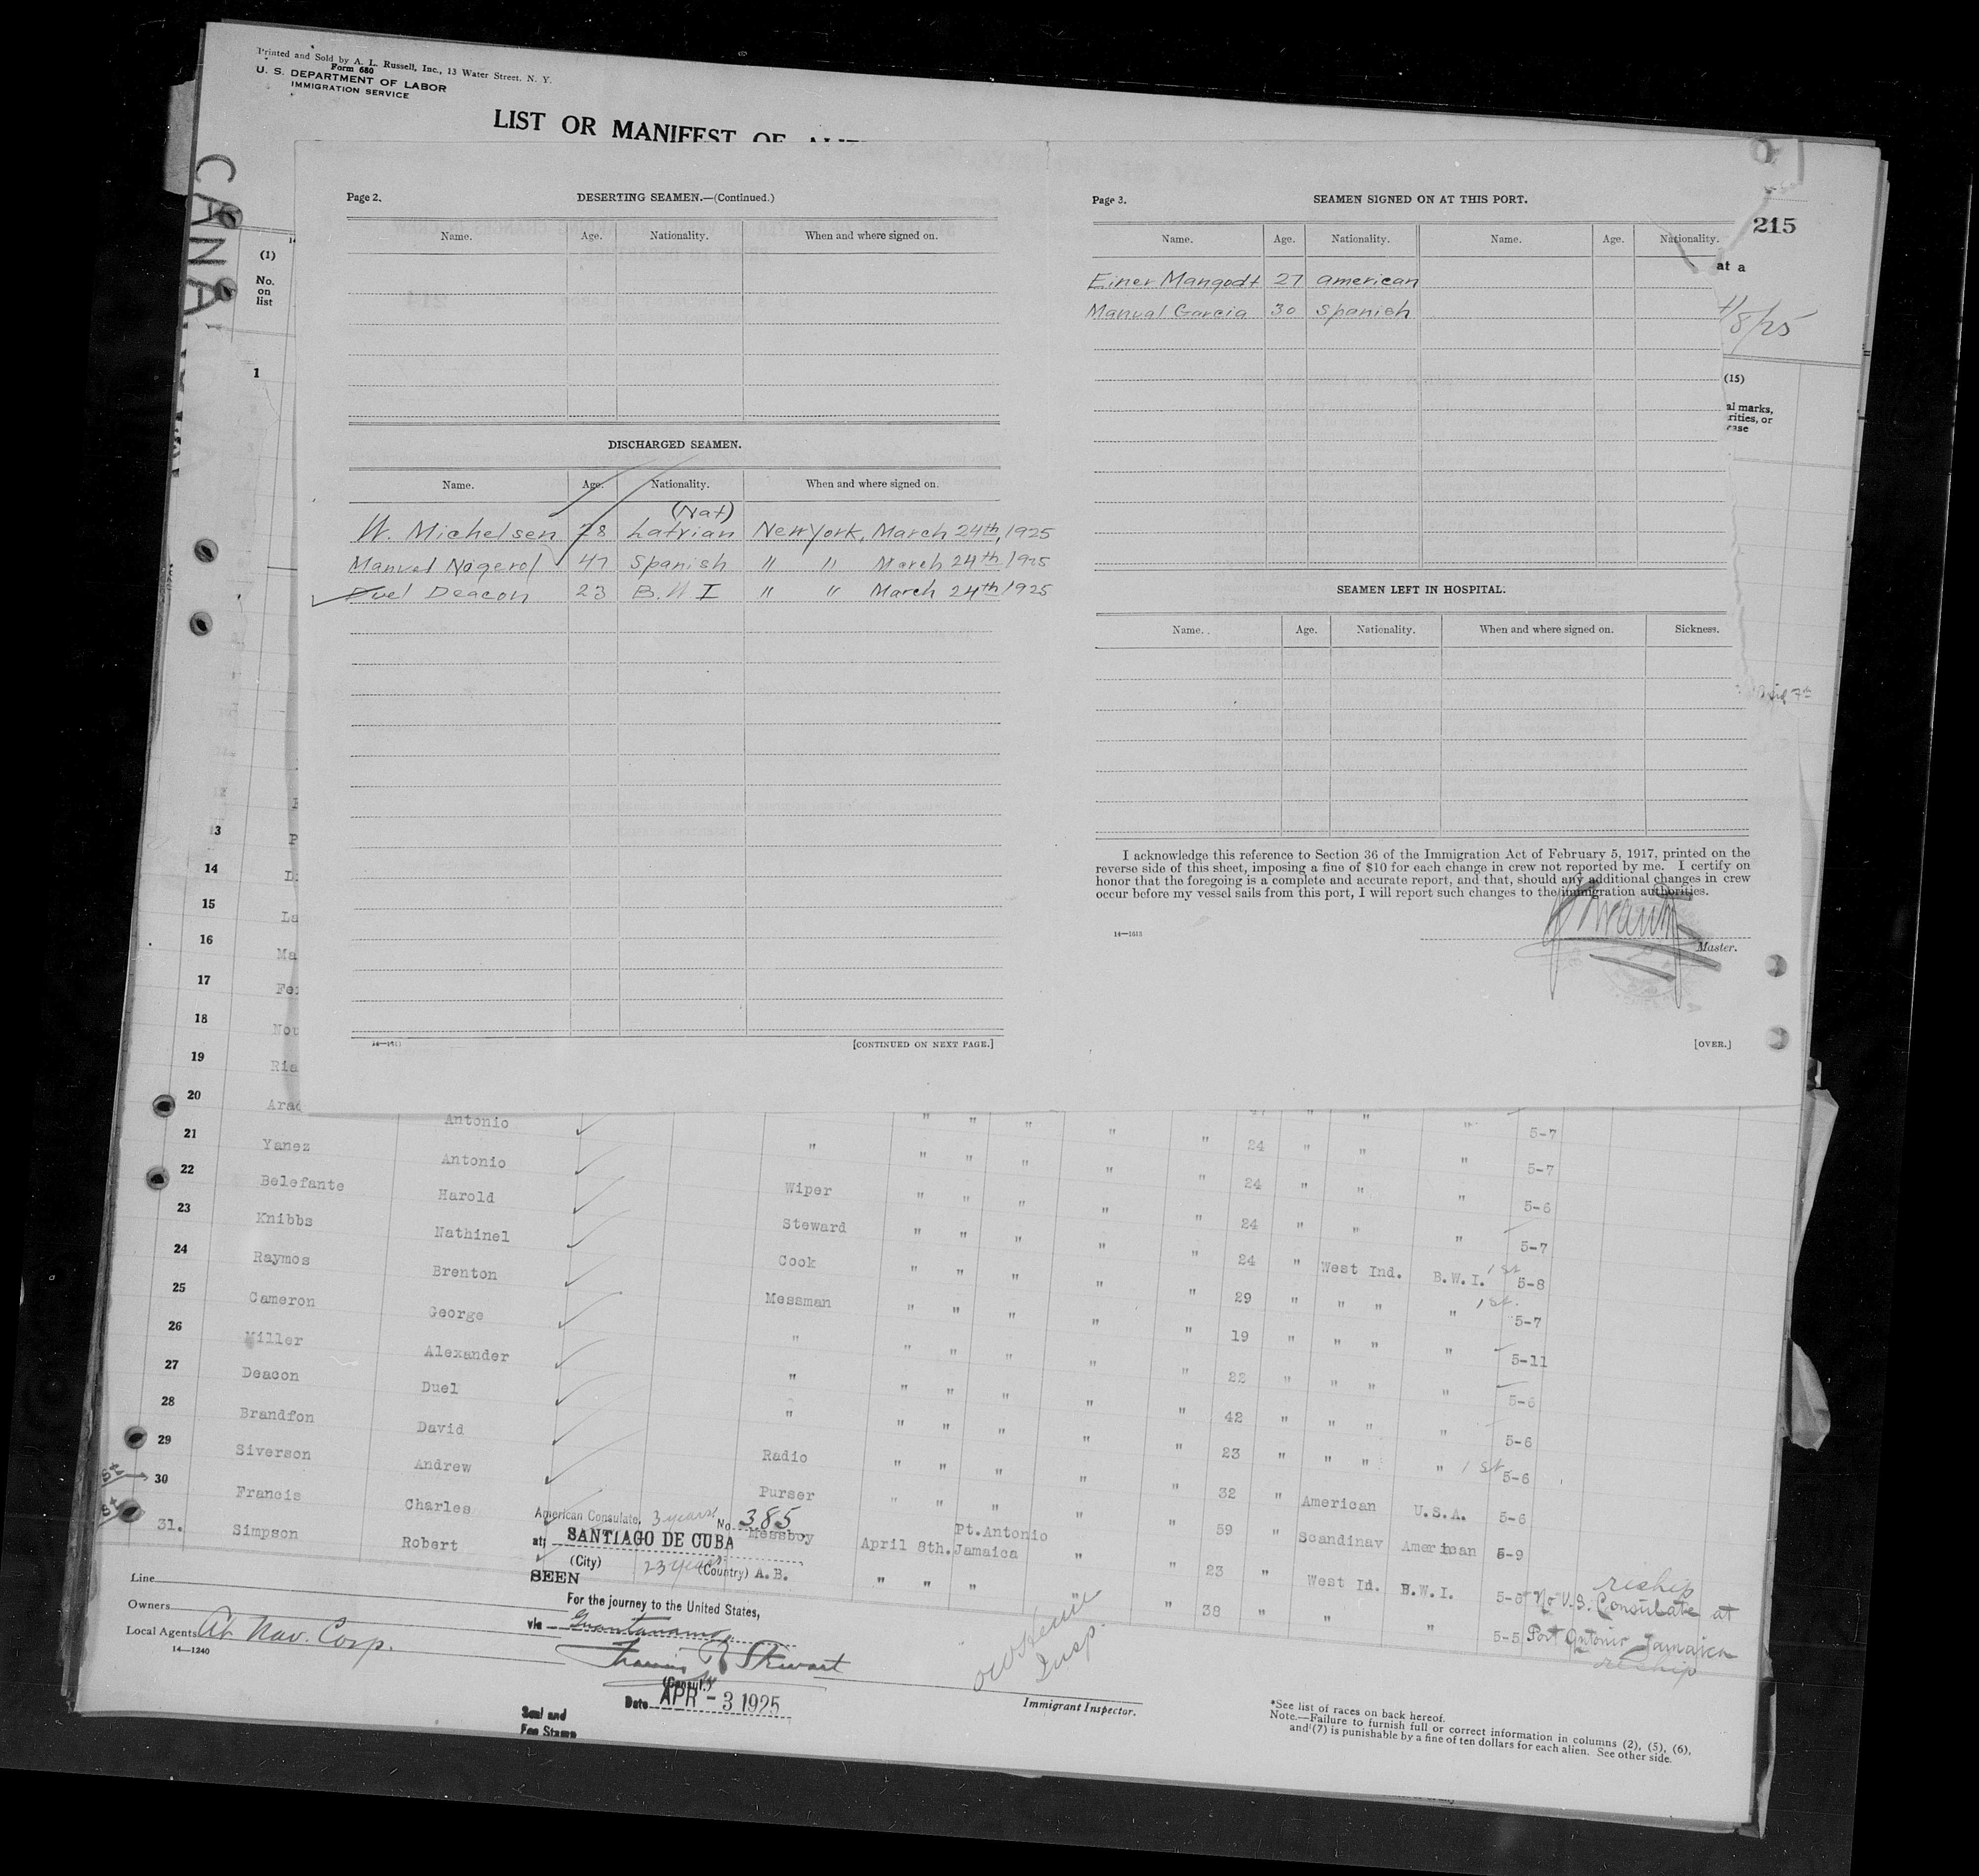 Printed and Sold by A. L. Russell, Inc., 13 Water Street, N. Y.
Form 680
U. S. DEPARTMENT OF LABOR
IMMIGRATION SERVICE
LIST OR MANIFEST OF
CANA
(1)
No.
on
list
1
215
at a
4/8/25
(15)
al marks,
rities, or
ease
Page 2.
DESERTING SEAMEN.—(Continued.)
Name. Age. Nationality. When and where signed on.
DISCHARGED SEAMEN.
Name. Age. Nationality. When and where signed on.
(Nat)
W. Michelsen 28 Latvian New York, March 24th, 1925
Manuel Nogerol 47 Spanish " " March 24th 1925
Duel Deacon 23 B.W I " " March 24th 1925
[CONTINUED ON NEXT PAGE.]
Page 3.
SEAMEN SIGNED ON AT THIS PORT.
Name. Age. Nationality. Name. Age. Nationality.
Einer Mangodt 27 american
Manual Garcia 30 Spanish
SEAMEN LEFT IN HOSPITAL.
Name. Age. Nationality. When and where signed on. Sickness.
I acknowledge this reference to Section 36 of the Immigration Act of February 5, 1917, printed on the
reverse side of this sheet, imposing a fine of $10 for each change in crew not reported by me. I certify on
honor that the foregoing is a complete and accurate report, and that, should any additional changes in crew
occur before my vessel sails from this port, I will report such changes to the immigration authorities.
14—1613
Master.
[OVER.]
13 P
14
15 La
16 Ma
17 Fe
18 Nou
19 Ria
20 Arao Antonio " " " " " 47 " " " 5-7
21 Yanez Antonio " " " " " " 24 " " " 5-7
22 Belefante Harold Wiper " " " " " 24 " " " 5-6
23 Knibbs Nathinel Steward " " " " " 24 " " " 5-7
24 Raymos Brenton Cook " " " " " 24 " West Ind. B.W.I. 1st 5-8
25 Cameron George Messman " " " " " 29 " " " " 1st. 5-7
26 Miller Alexander " " " " " " 19 " " " " 5-11
27 Deacon Duel " " " " " " 22 " " " " 5-6
28 Brandfon David " " " " " " 42 " " " " 5-6
29 Siverson Andrew Radio " " " " " 23 " " " " 1st 5-6
30 Francis Charles Purser " " " " " 32 " American U.S.A. 5-6
31. Simpson Robert Messboy April 8th. Pt.Antonio Jamaica " " 59 " Scandinav American 5-9
A.B. " " " " " 23 " West Id. B.W.I. 5-6 No U.S. Consulate at
" 38 " " " 5-5 Port Antonio Jamaica
reship
reship
American Consulate, 3 years No. 385
at SANTIAGO DE CUBA
(City) 23 years (Country)
SEEN
For the journey to the United States,
via Guantanamo
Francis R Stewart
(Consul.)
Date APR - 3 1925
Seal and
Fee Stamp
Line
Owners
Local Agents Atl. Nav. Corp.
14—1240
Insp.
Immigrant Inspector.
*See list of races on back hereof.
Note.—Failure to furnish full or correct information in columns (2), (5), (6),
and (7) is punishable by a fine of ten dollars for each alien. See other side.